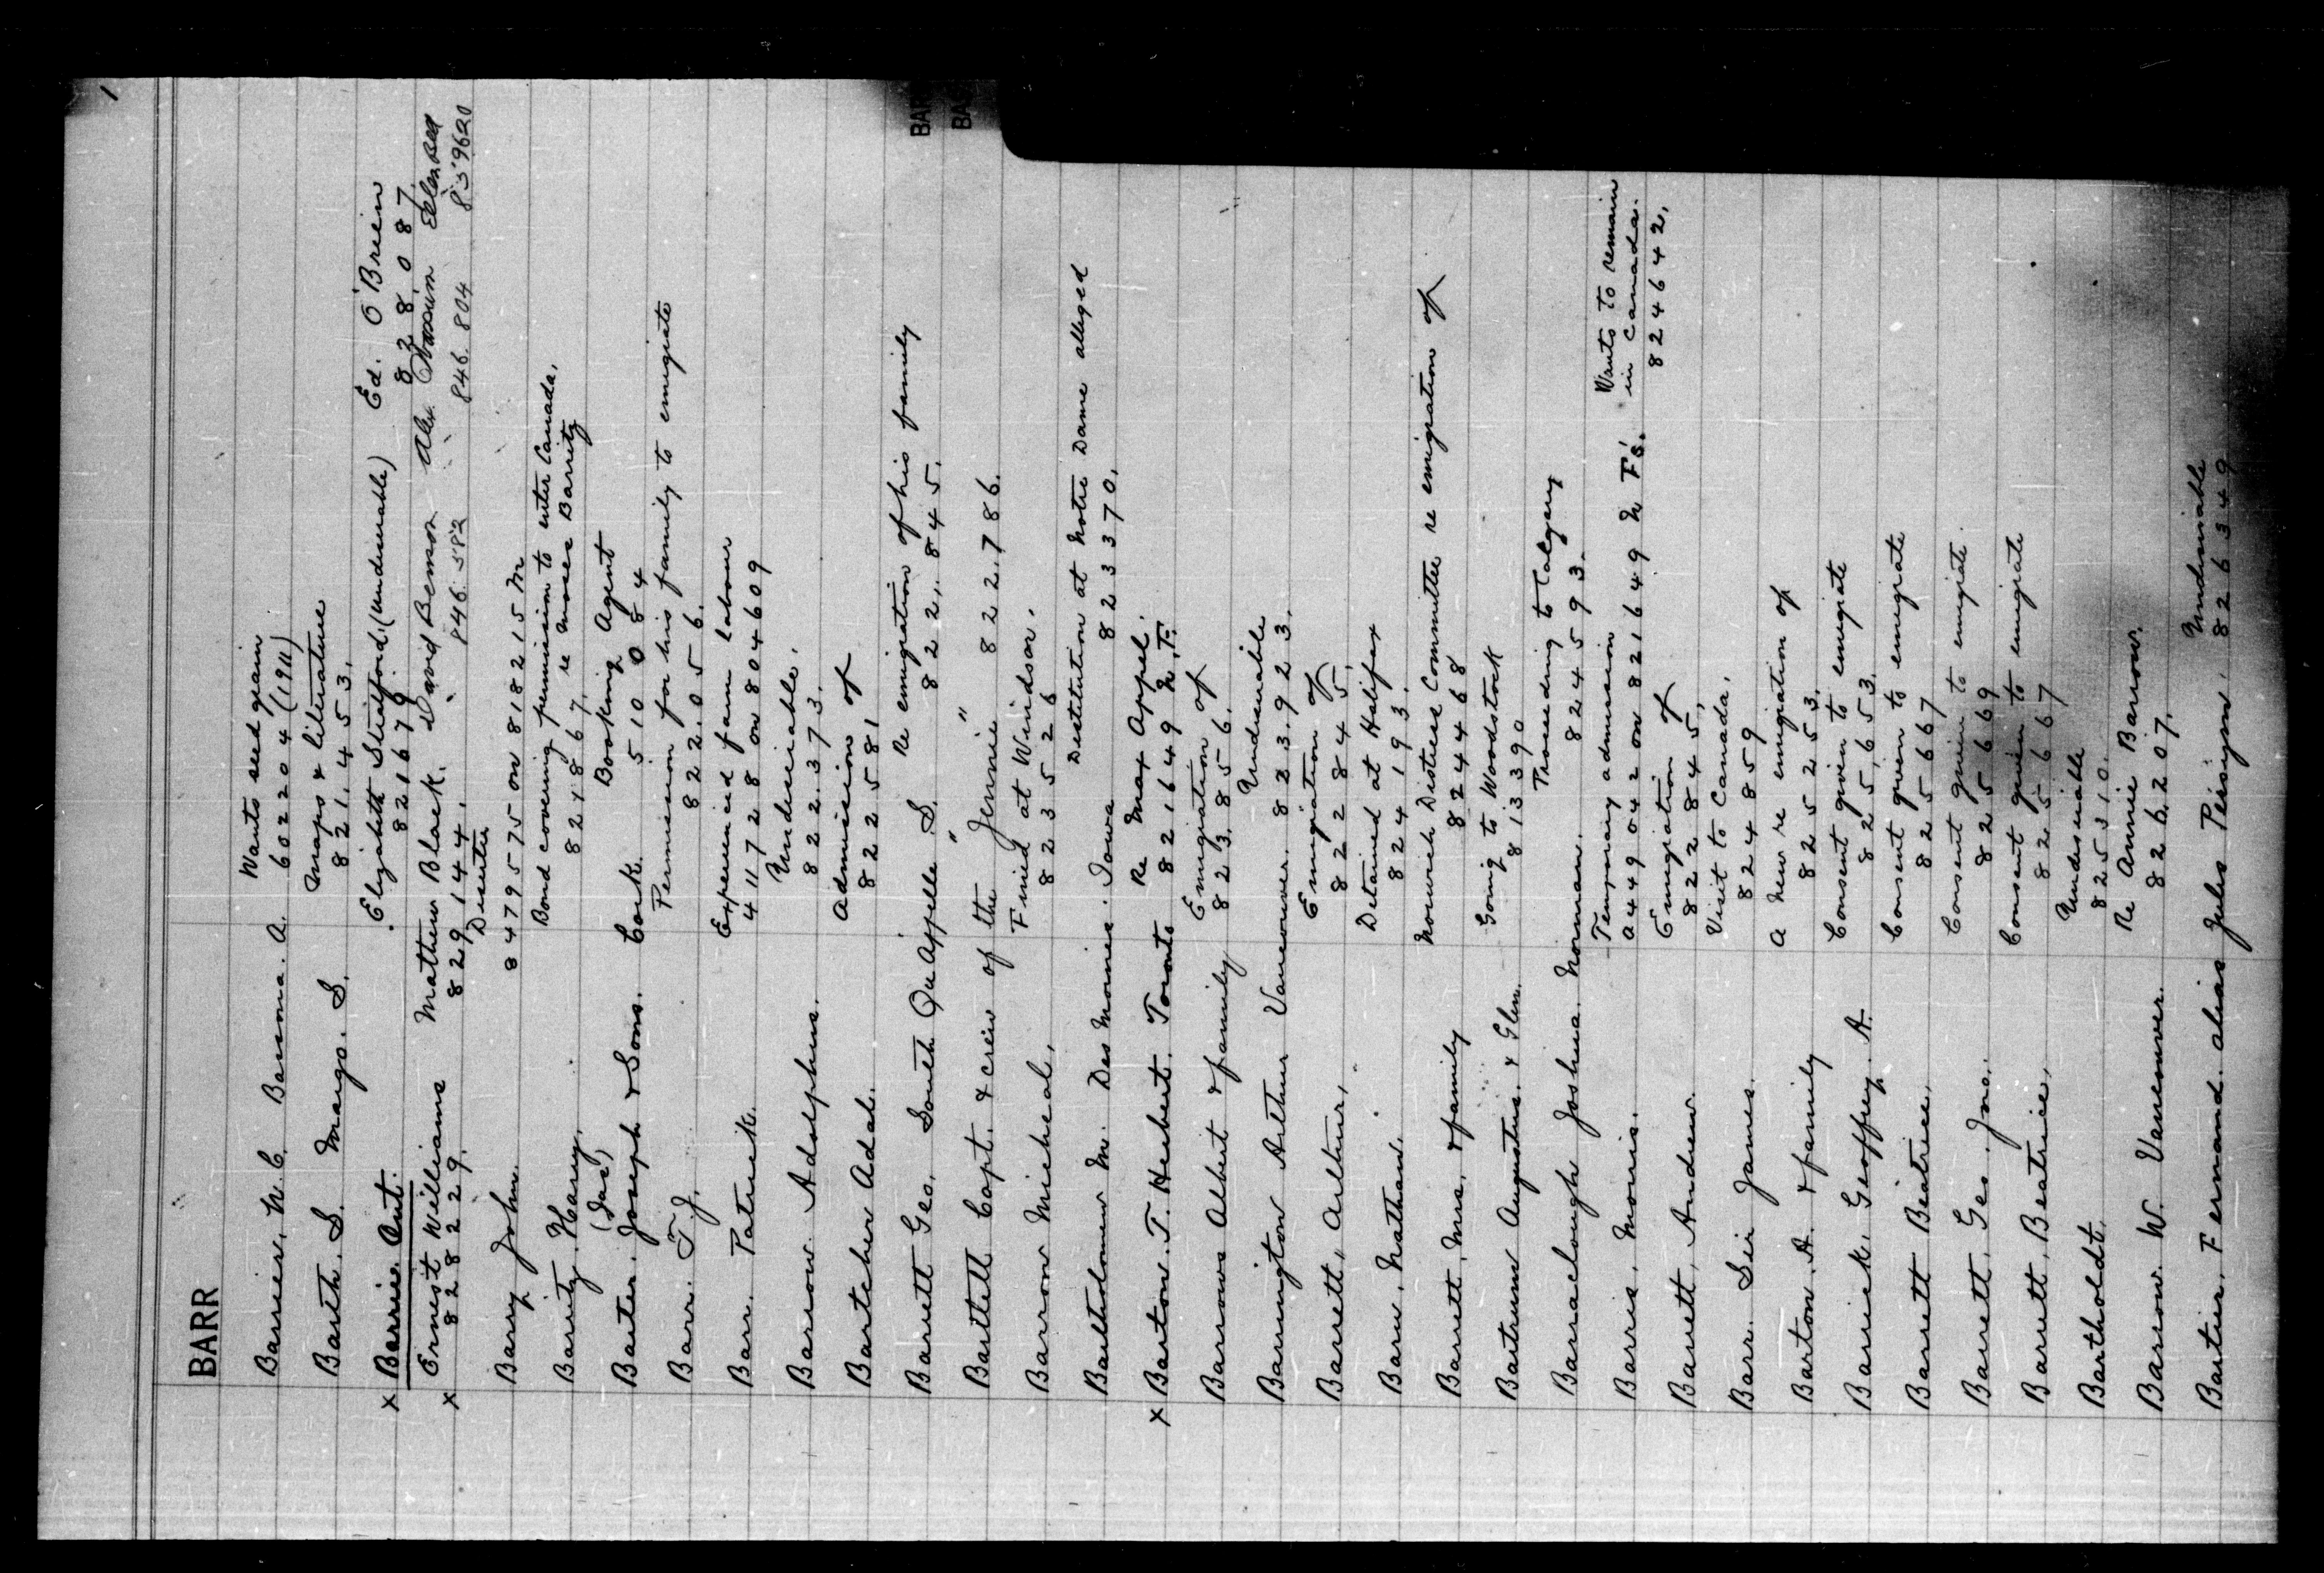 BARR
Barrier, N. C. A. Wants seed grain
602204 (1911)
Barth. S. Margo. S. Maps & literature
821,453.
x Barrie. Ont. Elizabeth (undesirable) Ed. O'Brien
821679. 828,087
x Ernest Williams Matthew Black. David Benson Alex
828229. 829,144. 846.582 846.804 859620
Barry, John. Deserter
8479575 on 818215 M
Barrity. Harry. Bond covering permission to enter Canada,
821867, re Moses Barrity
Barter. (Jas) Joseph & Sons. Cork. Booking Agent
510084
Barr. T. J. Permission for his family to emigrate
822.056.
Barr. Patrick. Experienced farm labour
411728 on 804609
Barrow. Adolphus. Undesirable.
822.373.
Bartcher Adal. Admission of
822581
Barrett Geo. South Qu'Appelle S. Re emigration of his family
822,845.
Bartlett Capt. & crew of the "Jennie" 822.786.
Barrow Micheal, Fined at Windsor.
823526
Bartholomew M. Des Moines. Iowa Destitution at Notre Dame alleged
823370.
x Barton. T. Herbert. Toronto Re Max Appel.
821649 N.F.
Barrows Albert & family Emigration of
823.856.
Barrington Arthur Vancouver. Undesirable
823.923.
Barrett, Arthur, Emigration of
822845.
Barn, Nathan. Detained at Halifax
824193.
Barrett, Mrs. & family Norwich Distress Committee re emigration of
824468
Bartrum Augustus. & Glen. Going to Woodstock
813390
Barraclough Joshua. Norman. Proceeding to Calgary
824593.
Barris. Morris. Temporary admission Wants to remain
a449042 on 821649 N F's. in Canada.
824642.
Barrett, Andrew. Emigration of
822845,
Barr. Sir James. Visit to Canada,
824859
Barton. A. & family A new re emigration of
825253.
Barrick. Geoffrey. A. Consent given to emigrate
825,653.
Barrett Beatrice, Consent given to emigrate
825667
Barrett, Geo. Jno. Consent given to emigrate
825669
Barrett, Beatrice, Consent given to emigrate
825667
Bartholdt, Undesirable
825310.
Barrow. W. Vancouver. Re Annie Barrow.
826.207.
Bartier, Fernand. alias Jules Undesirable
826349
BAR
BA